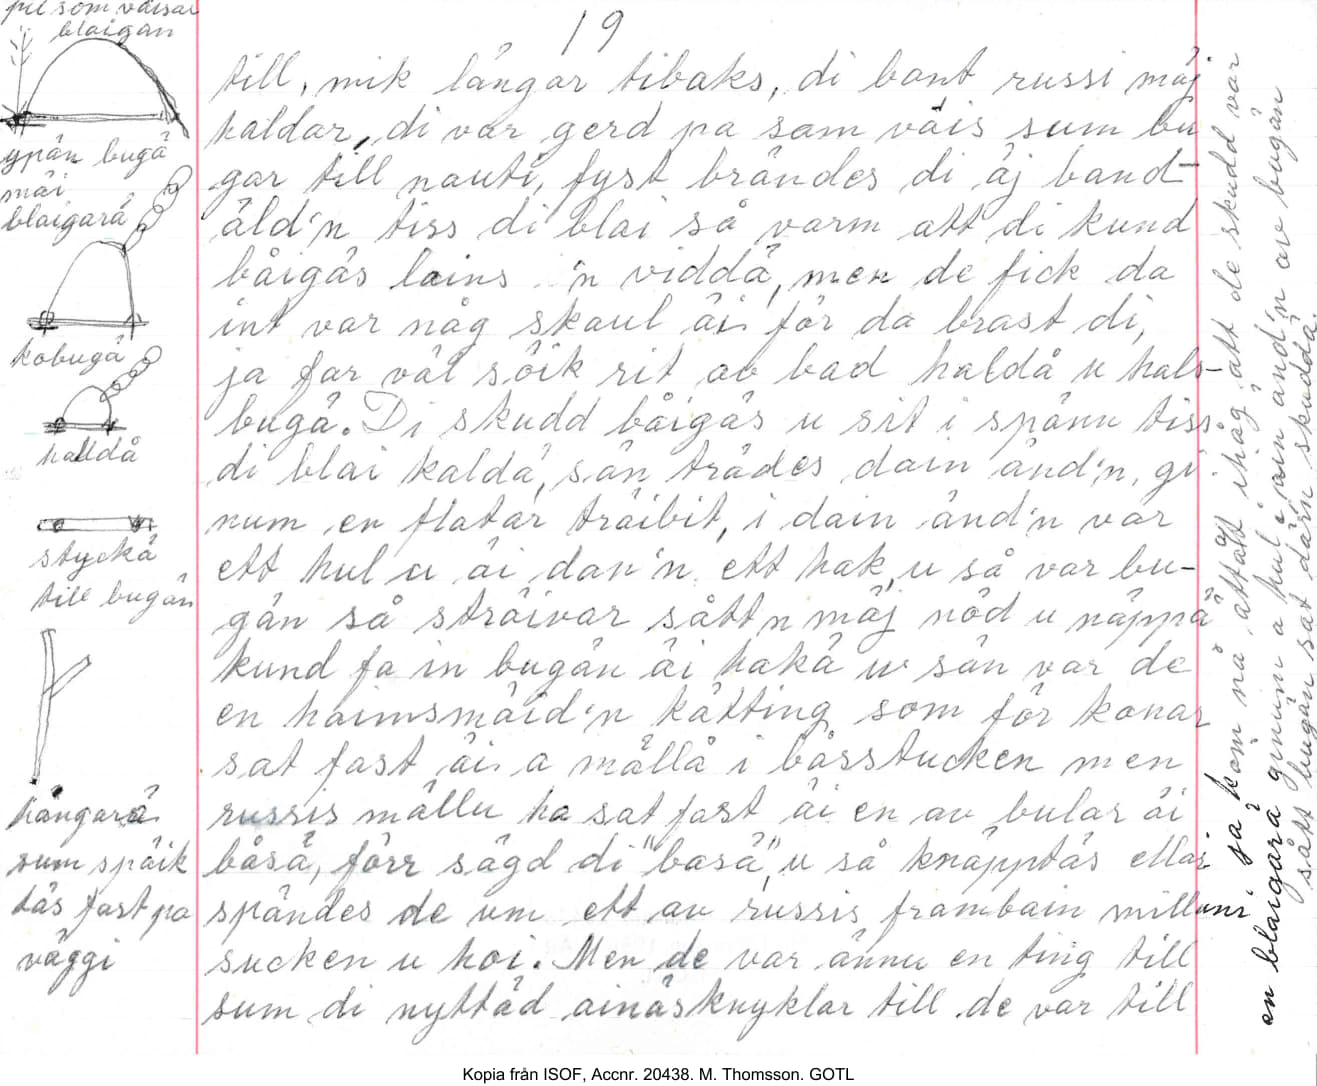 19
pil som väisar
blaigan
gpån bugå
mäi
blaigarå
kobugå
halldå
styckå
till bugån
hängarå
sum späik
täs fast pa
väggi
till, mik längar tibaks, di bant russi mäj
haldar, di var gerd pa sam väis sum bu
gar till nauti, fyst brändes di äj band-
äld'n tiss di blai så varm att di kund
båigäs lains 'n viddå, men de fick da
int var någ skaul äi för da brast di,
ja far väl söik rit av bad haldå u hals-
bugå. Di skudd båigäs u sit i spänn tiss
di blai kaldå, sän trädes dain änd'n, gi
num en flatar träibit, i dain änd'n var
ett hul u äi dan'n ett hak, u så var bu-
gån så sträivar sått'n mäj nöd u näppå
kund fa in bugån äi hakå u sän var de
en haimsmäid'n kätting som för konar
sat fast äi a mällå i båsstucken men
russis mällu ha sat fast äi en av bular äi
båså, förr sägd di "baså", u så knäpptäs ellar
spändes de um ett av russis frambain millum
sucken u hoi. Men de var ännu en ting till
sum di nyttäd ainäsknyklar till de var till
ja kom nå attått ihåg att de skudd var
en blaigarå ginum a hul i ain änd'n av bugån
sått bugån sat därn skuddå.